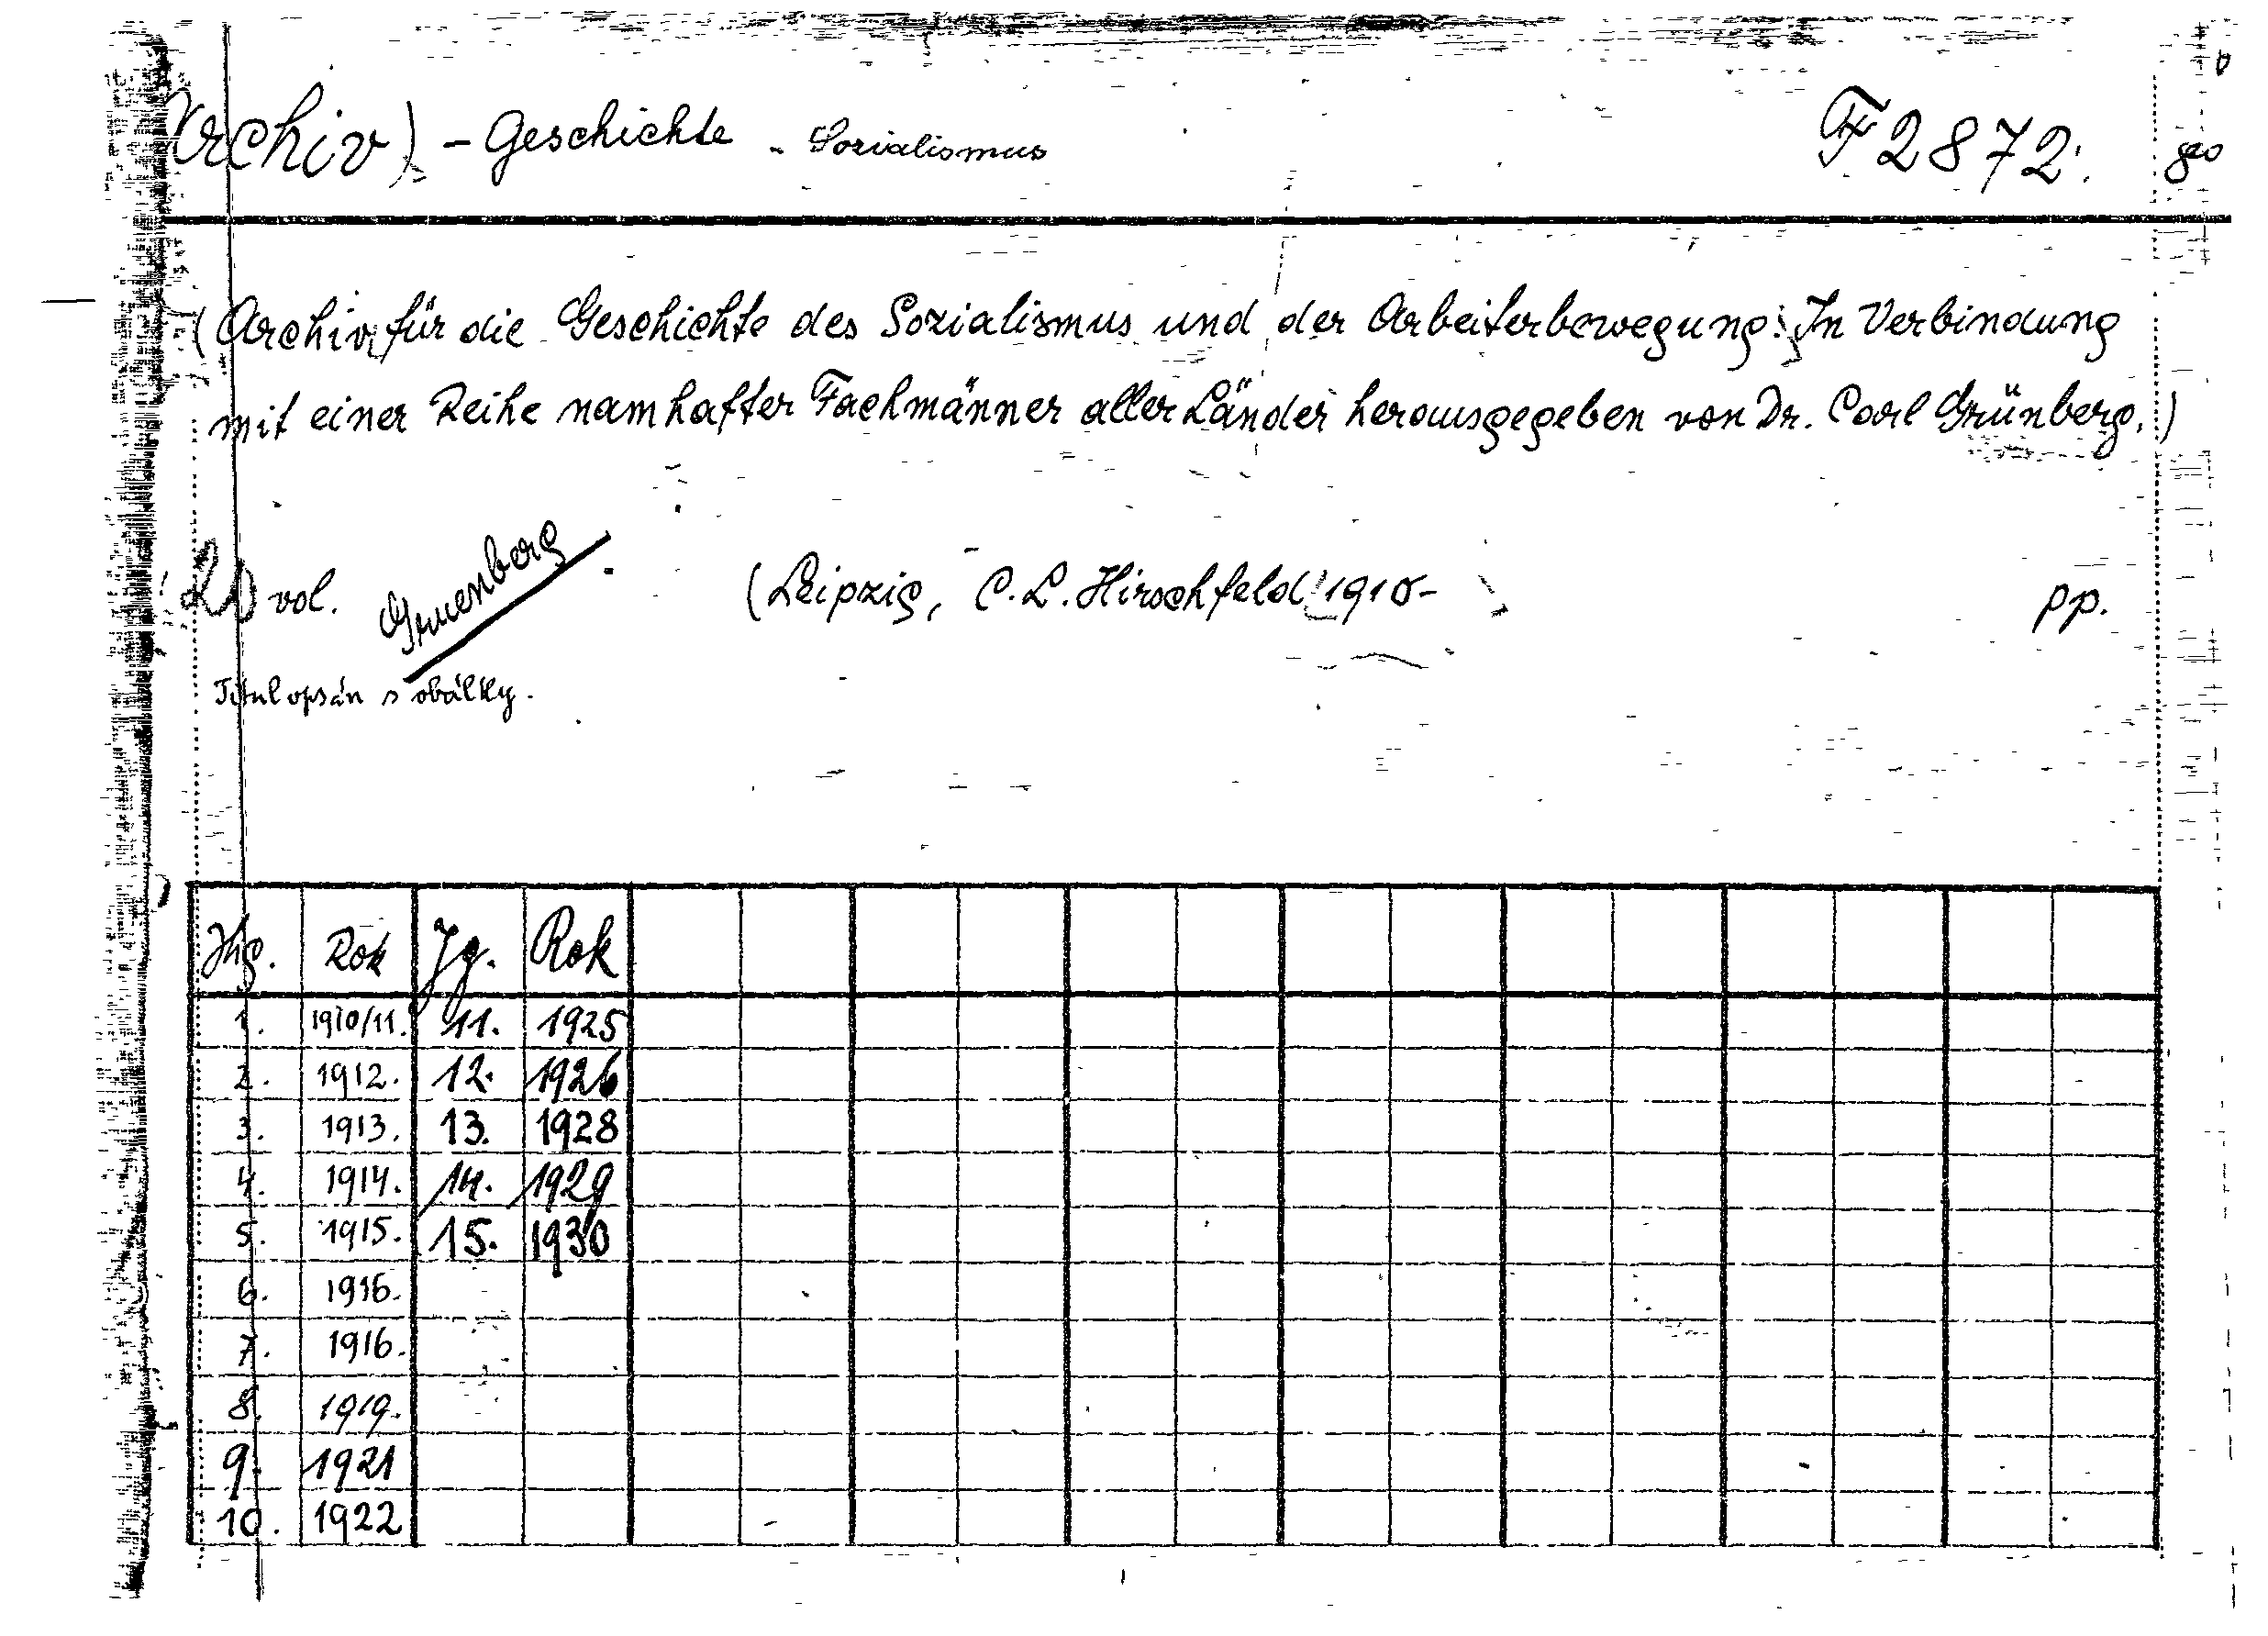 Archiv) - Geschichte - Sozialismus F 2872. geo
(Archiv für die Geschichte des Sozialismus und der Arbeiterbewegung. In Verbindung
mit einer Reihe namhafter Fachmänner aller Länder herausgegeben von Dr. Carl Grünberg.)
vol. Gruenberg (Leipzig, C. L. Hirschfeld 1910- pp.
Titul opsán s obálky.
Jhg. Rok Jg. Rok
1. 1910/11. 11. 1925
2. 1912. 12. 1926
3. 1913. 13. 1928
4. 1914. 14. 1929
5. 1915. 15. 1930
6. 1916.
7. 1916.
8. 1919.
9. 1921
10. 1922